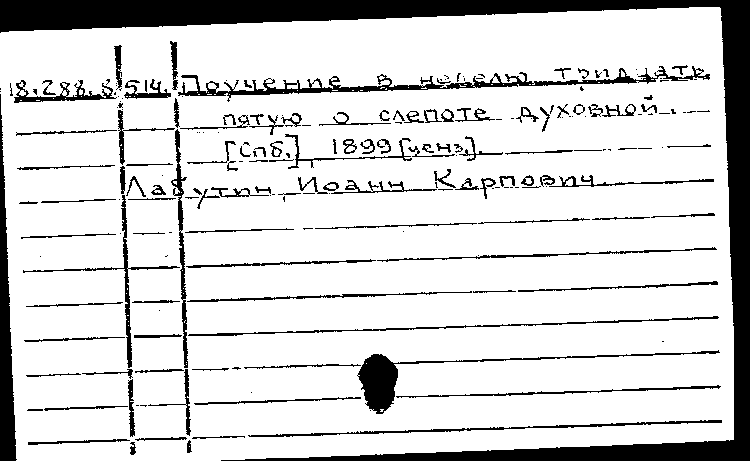 18.288.8.514. Поучение в неделю тридцать
пятую о слепоте духовной.
[Спб.], 1899 [ценз.].
Лабутин, Иоанн Карпович.